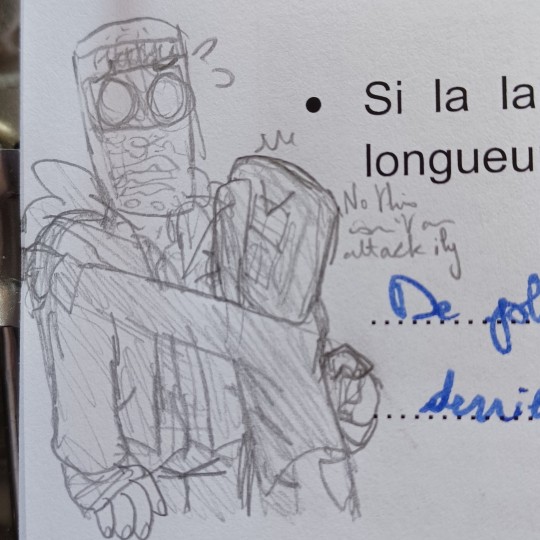 • Si la la
longueu
No this
isn't an
attack ily
De pol
derriè